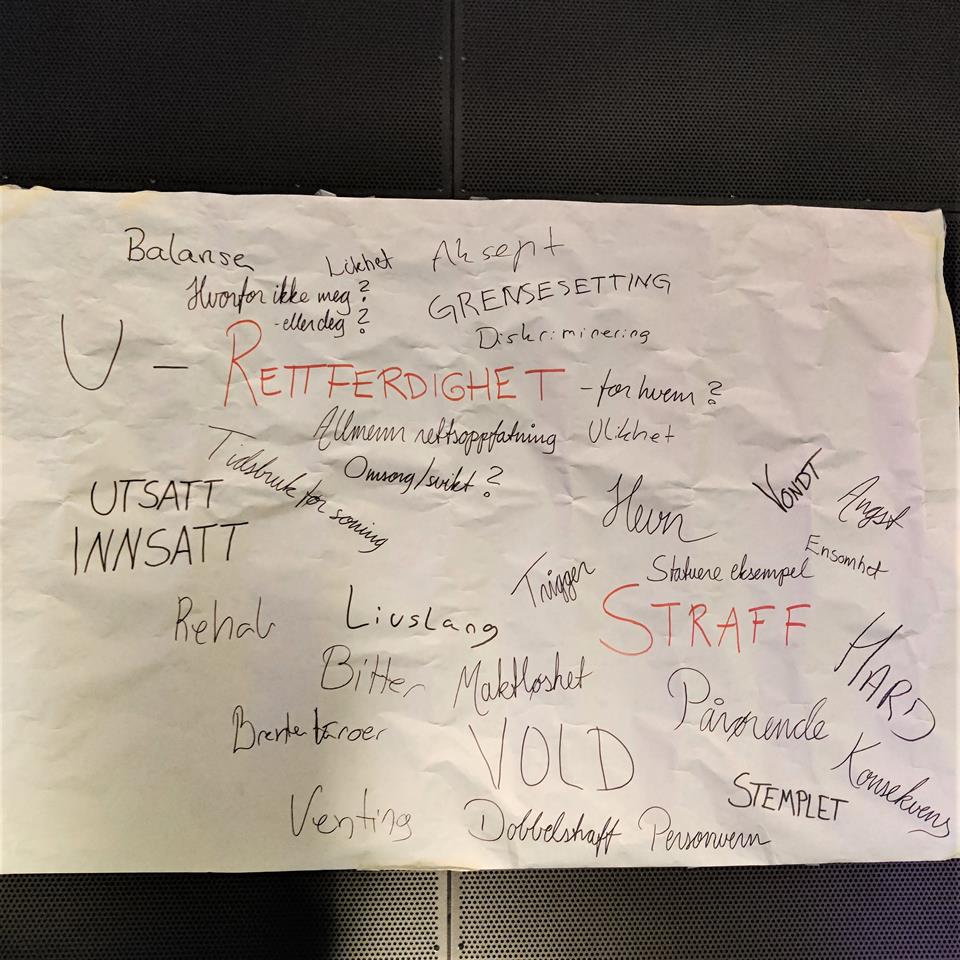 Balanse
Likhet
Aksept
Hvorfor ikke meg?
- eller deg?
GRENSESETTING
Diskriminering
U - RETTFERDIGHET - for hvem?
Allmenn rettsoppfatning
Ulikhet
Tidsbruk for soning
Omsorg/svikt?
UTSATT
INNSATT
Hevn
VONDT
Angst
Ensomhet
Trigger
Statuere eksempel
STRAFF
Rehab
Livslang
HARD
Bitter
Maktløshet
Pårørende
Brente broer
VOLD
Konsekvens
STEMPLET
Venting
Dobbelstraff
Personvern